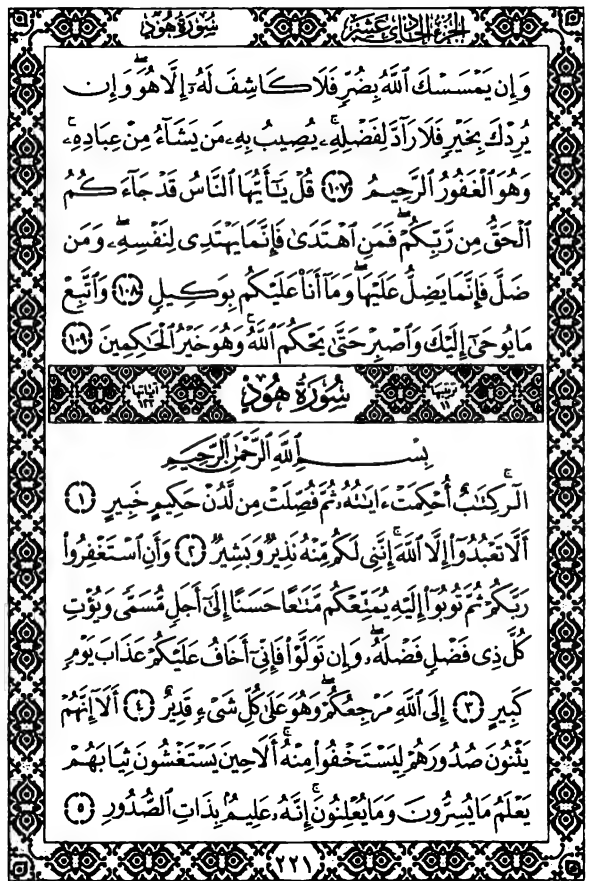 الجزء الحادي عشر سُورَةُ هُودٍ
وَإِن يَمْسَسْكَ ٱللَّهُ بِضُرٍّ فَلَا كَاشِفَ لَهُۥٓ إِلَّا هُوَۖ وَإِن
يُرِدْكَ بِخَيْرٍ فَلَا رَآدَّ لِفَضْلِهِۦۚ يُصِيبُ بِهِۦ مَن يَشَآءُ مِنْ عِبَادِهِۦۚ
وَهُوَ ٱلْغَفُورُ ٱلرَّحِيمُ ۝١٠٧ قُلْ يَٰٓأَيُّهَا ٱلنَّاسُ قَدْ جَآءَكُمُ
ٱلْحَقُّ مِن رَّبِّكُمْۖ فَمَنِ ٱهْتَدَىٰ فَإِنَّمَا يَهْتَدِى لِنَفْسِهِۦۖ وَمَن
ضَلَّ فَإِنَّمَا يَضِلُّ عَلَيْهَاۖ وَمَآ أَنَا۠ عَلَيْكُم بِوَكِيلٍ ۝١٠٨ وَٱتَّبِعْ
مَا يُوحَىٰٓ إِلَيْكَ وَٱصْبِرْ حَتَّىٰ يَحْكُمَ ٱللَّهُۚ وَهُوَ خَيْرُ ٱلْحَٰكِمِينَ ۝١٠٩
ترتيبها ١١ سُورَةُ هُودٍ آياتها ١٢٣
بِسْمِ ٱللَّهِ ٱلرَّحْمَٰنِ ٱلرَّحِيمِ
الٓرۚ كِتَٰبٌ أُحْكِمَتْ ءَايَٰتُهُۥ ثُمَّ فُصِّلَتْ مِن لَّدُنْ حَكِيمٍ خَبِيرٍ ۝١
أَلَّا تَعْبُدُوٓا۟ إِلَّا ٱللَّهَۚ إِنَّنِى لَكُم مِّنْهُ نَذِيرٌ وَبَشِيرٌ ۝٢ وَأَنِ ٱسْتَغْفِرُوا۟
رَبَّكُمْ ثُمَّ تُوبُوٓا۟ إِلَيْهِ يُمَتِّعْكُم مَّتَٰعًا حَسَنًا إِلَىٰٓ أَجَلٍ مُّسَمًّى وَيُؤْتِ
كُلَّ ذِى فَضْلٍ فَضْلَهُۥۖ وَإِن تَوَلَّوْا۟ فَإِنِّىٓ أَخَافُ عَلَيْكُمْ عَذَابَ يَوْمٍ
كَبِيرٍ ۝٣ إِلَى ٱللَّهِ مَرْجِعُكُمْۖ وَهُوَ عَلَىٰ كُلِّ شَىْءٍ قَدِيرٌ ۝٤ أَلَآ إِنَّهُمْ
يَثْنُونَ صُدُورَهُمْ لِيَسْتَخْفُوا۟ مِنْهُۚ أَلَا حِينَ يَسْتَغْشُونَ ثِيَابَهُمْ
يَعْلَمُ مَا يُسِرُّونَ وَمَا يُعْلِنُونَۚ إِنَّهُۥ عَلِيمٌۢ بِذَاتِ ٱلصُّدُورِ ۝٥
٢٢١